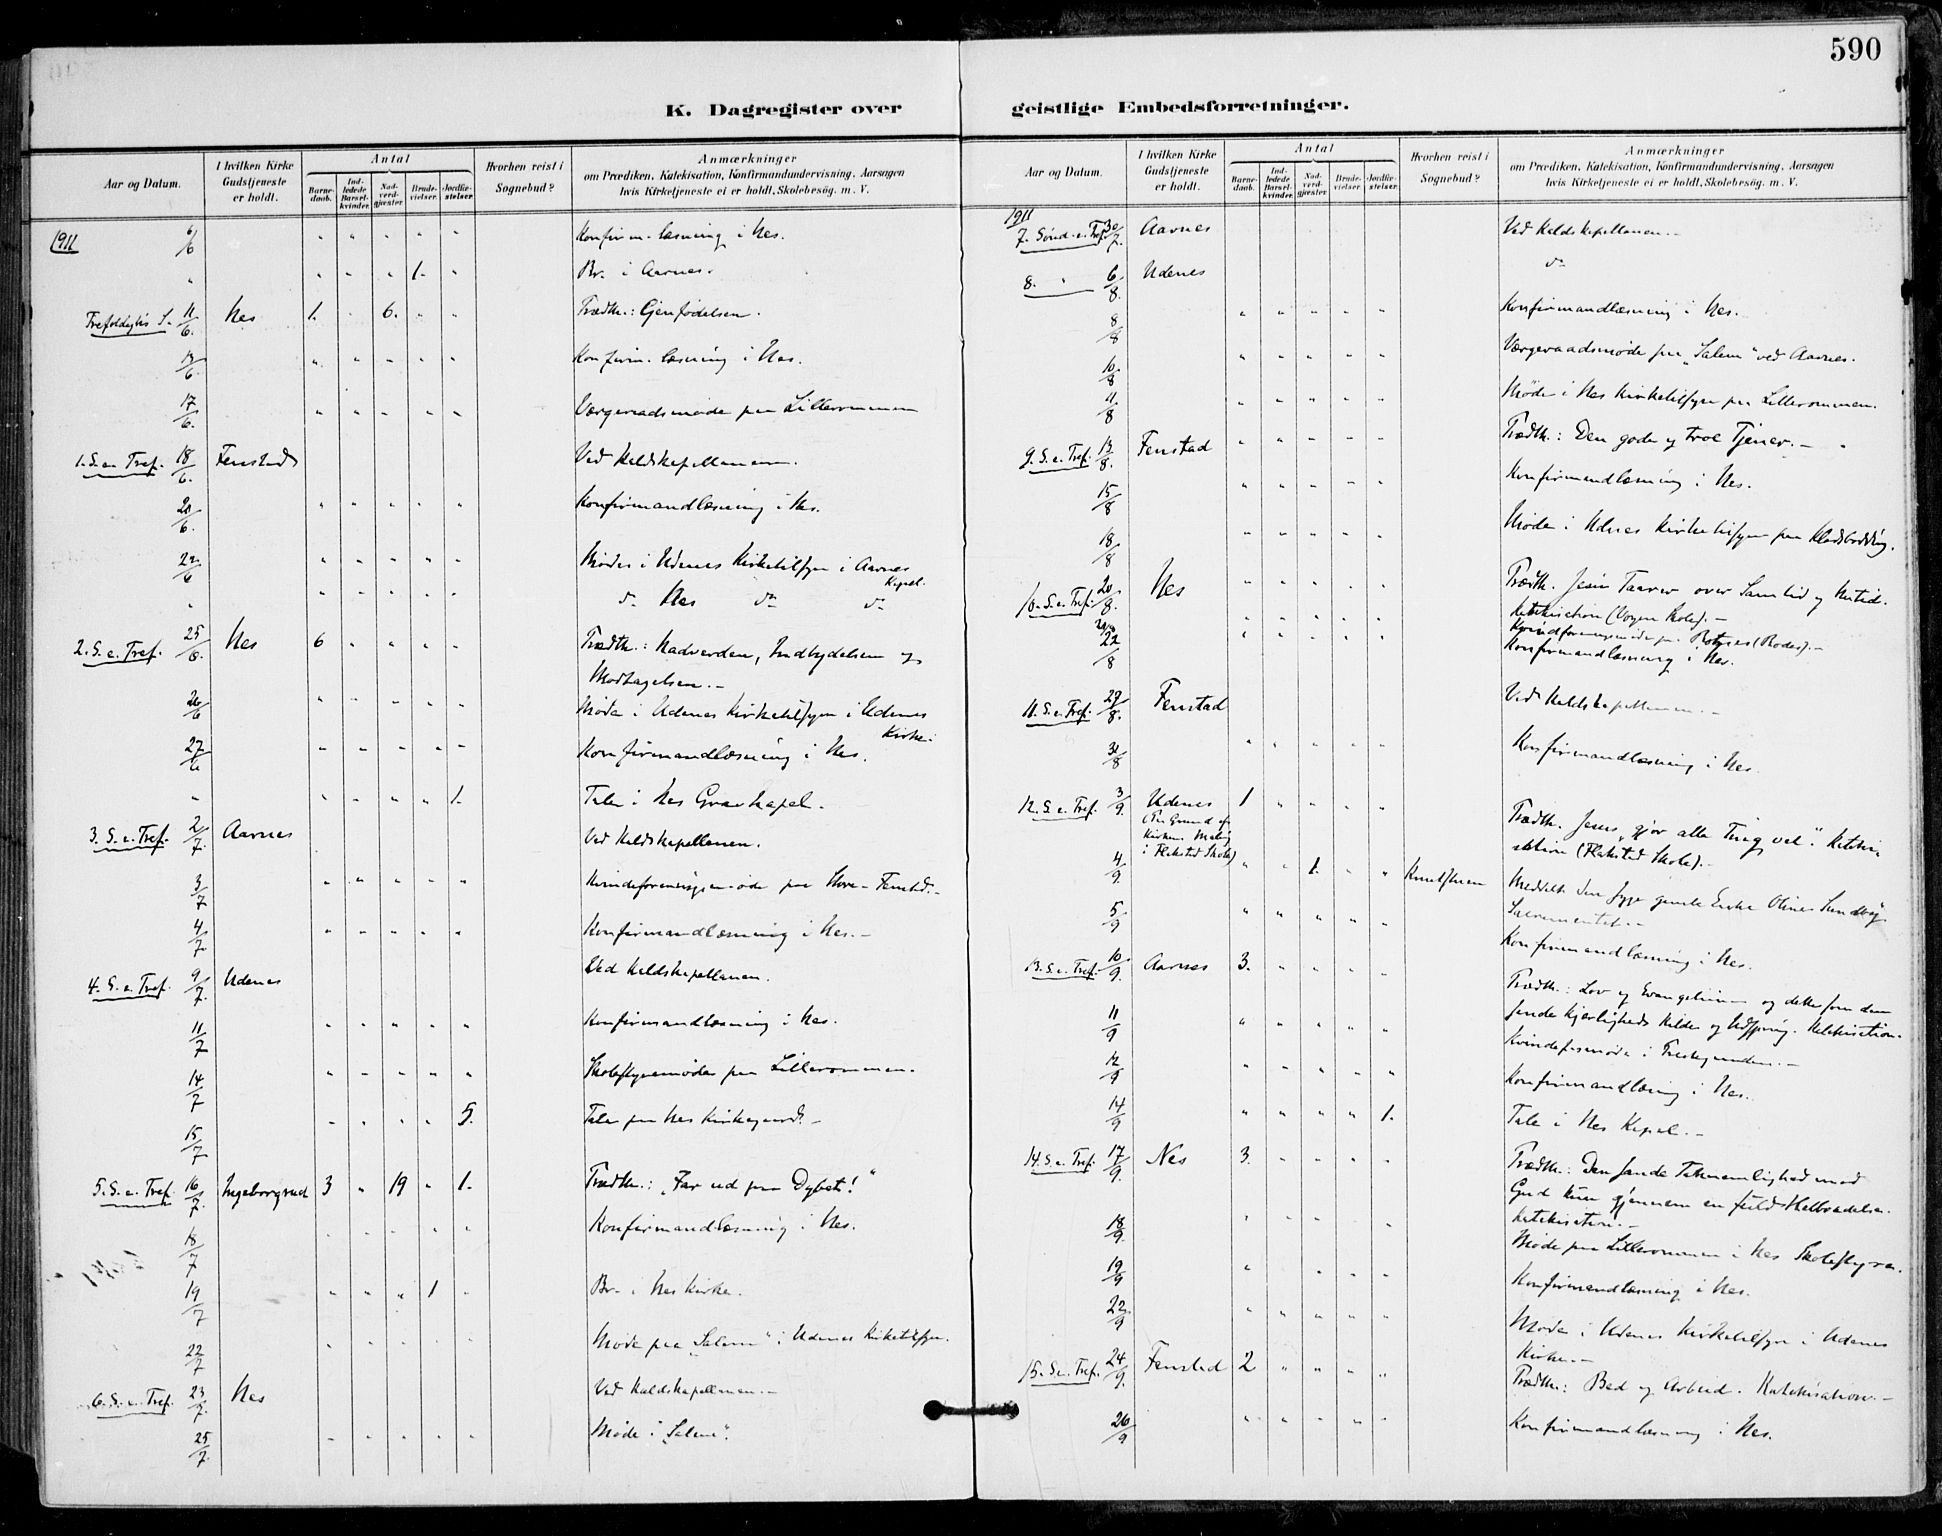 590
K. Dagregister over geistlige Embedsforretninger.
Aar og Datum. I hvilken Kirke Gudstjeneste er holdt. Antal Barnedaab. Indledede Barselkvinder. Nadverdgjæster. Brudevielser. Jordfæstelser. Hvorhen reist i Sognebud? Anmærkninger om Prædiken, Katekisation, Konfirmandundervisning, Aarsagen hvis Kirketjeneste ei er holdt, Skolebesøg. m. V.
1911 6/6 " " " " " Konfirm. læsning i Nes.
" " " " 1. " Br. i Aarnes.
Trefoldighs S. 11/6. Nes 1. " 6. " " Prædth.: Gjenfødelsen.
13/6. " " " " " Konfirm. læsning i Nes.
17/6. " " " " " Værgeraadsmøde paa Lilleromunen
1. S. e. Tref. 18/6. Fenstad Ved Kaldskapellanen.
20/6. " " " " " Konfirmandlæsning i Nes.
22/6 " " " " " Møder i Udenes Kirketilsyn i Aarnes
Kapel.
" " " " " " do Nes do do
2. S. e. Tref. 25/6. Nes 6 " " " " Prædth.: Nadverden, Indbydelsen og
Modtagelsen.-
26/6 " " " " " Møde i Udenes Kirketilsyn i Udenes
Kirke.
27/6 " " " " " Konfirmandlæsning i Nes.
" " " " " 1. Tale i Nes Gravkapel.
3. S. e. Tref. 2/7. Aarnes Ved Kaldskapellanen.
3/7 " " " " " Kvindeforeningsmøde paa Store-Fenstad.-
4/7. " " " " " Konfirmandlæsning i Nes.-
4. S. e. Tref. 9/7. Udenes Ved Kaldskapellanen.
11/7 " " " " " Konfirmandlæsning i Nes.
14/7 " " " " " Skolestyremøde paa Lilleromunen.
15/7 " " " " 5. Tale paa Nes Kirkegaard.-
5. S. e. Tref. 16/7. Ingeborgrud 3 " 19 " 1. Prædth.: "Far ud paa Dybet!"
18/7 " " " " " Konfirmandlæsning i Nes.
19/7 " " " 1 " Br. i Nes Kirke.
22/7 " " " " " Møde paa "Salem" i Udenes Kirketilsyn.
6. S. e. Tref. 23/7. Nes Ved Kaldskapellanen.-
25/7. " " " " " Møde i "Salem".
Aar og Datum. I hvilken Kirke Gudstjeneste er holdt. Antal Barnedaab. Indledede Barselkvinder. Nadverdgjæster. Brudevielser. Jordfæstelser. Hvorhen reist i Sognebud? Anmærkninger om Prædiken, Katekisation, Konfirmandundervisning, Aarsagen hvis Kirketjeneste ei er holdt, Skolebesøg. m. V.
1911
7. Sønd. e. Tref. 30/7. Aarnes Ved Kaldskapellanen.-
8. " 6/8. Udenes do
8/8 " " " " " Konfirmandlæsning i Nes.
10/8 " " " " " Værgeraadsmøde paa "Salem" ved Aarnes.
11/8 " " " " " Møde i Nes Kirketilsyn paa Lilleromunen.
9. S. e. Tref. 13/8. Fenstad " " " " " Prædth.: Den gode og tro Tjener.-
15/8 " " " " " Konfirmandlæsning i Nes.
18/8 " " " " " Møde i Udnes Kirketilsyn paa
10. S. e. Tref. 20/8. Nes " " " " " Prædth. Jesu Taarer over Samtid og Nutid.
Katekisation (Vogen Skole).-
Kvindeforeningsmøde paa (Rodes).-
22/8 " " " " " Konfirmandlæsning i Nes.
11. S. e. Tref. 27/8. Fenstad Ved Kaldskapellanen.-
30/8 " " " " " Konfirmandlæsning i Nes.
12. S. e. Tref. 3/9. Udenes 1 " " " " Prædth. Jesus "gjør alle Ting vel". Kateki-
(Paa Grund af
Kirkens Maling
i Flakstad Skole) sation (Flakstad Skole).-
4/9. " " 1. " " Meddelt den syge gamle Enke Oline Sundby
Sacramentet.-
5/9 " " " " " Konfirmandlæsning i Nes.
13. S. e. Tref. 10/9. Aarnes 3. " " " " Prædth.: Lov og Evangelium og dette som den
sande Kjærligheds Kilde og Udspring. Katekisation.
11/9 " " " " " Kvindefsmøde i Prestegaarden.-
12/9 " " " " " Konfirmandlæsning i Nes.
14/9 " " " " 1. Tale i Nes Kapel.-
14. S. e. Tref. 17/9. Nes 3. " " " " Prædth.: Den sande Taknemlighed mod
Gud kun gjennem en fuld Helbredelse.
Katekisation.-
18/9. " " " " " Møde paa Lilleromunen i Nes Skolestyre.
19/9 " " " " Konfirmandlæsning i Nes.
22/9 " " " " " Møde i Udenes Kirketilsyn i Udenes
Kirke.-
15. S. e. Tref. 24/9. Fenstad 2 " " " " Prædth.: Bed og Arbeid. Katekisation.-
26/9 " " " " " Konfirmandlæsning i Nes.